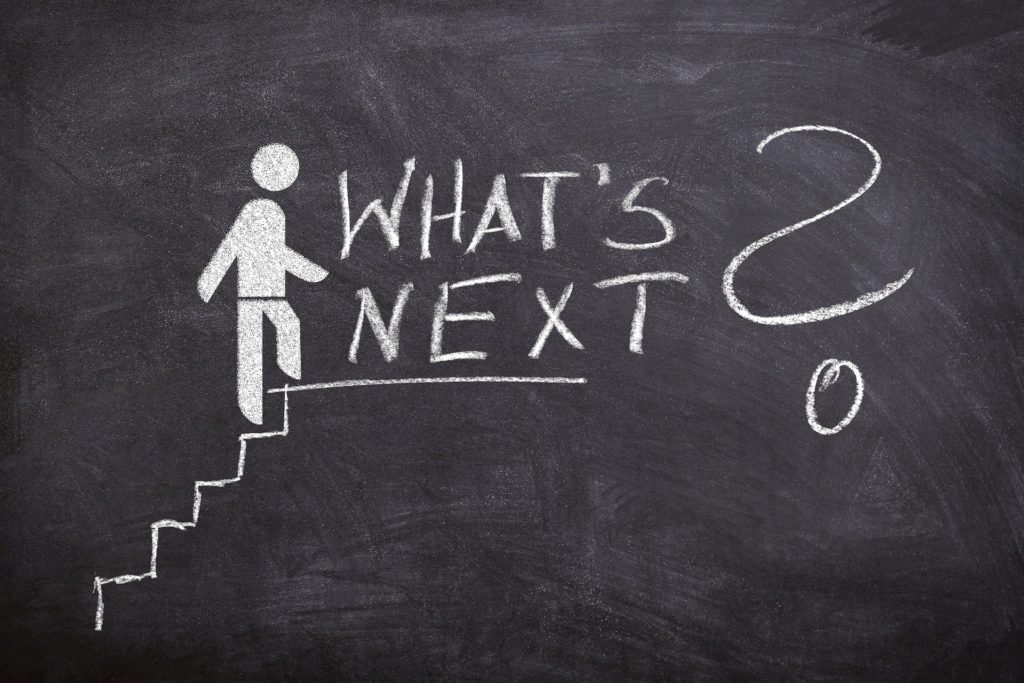 WHAT'S
NEXT ?